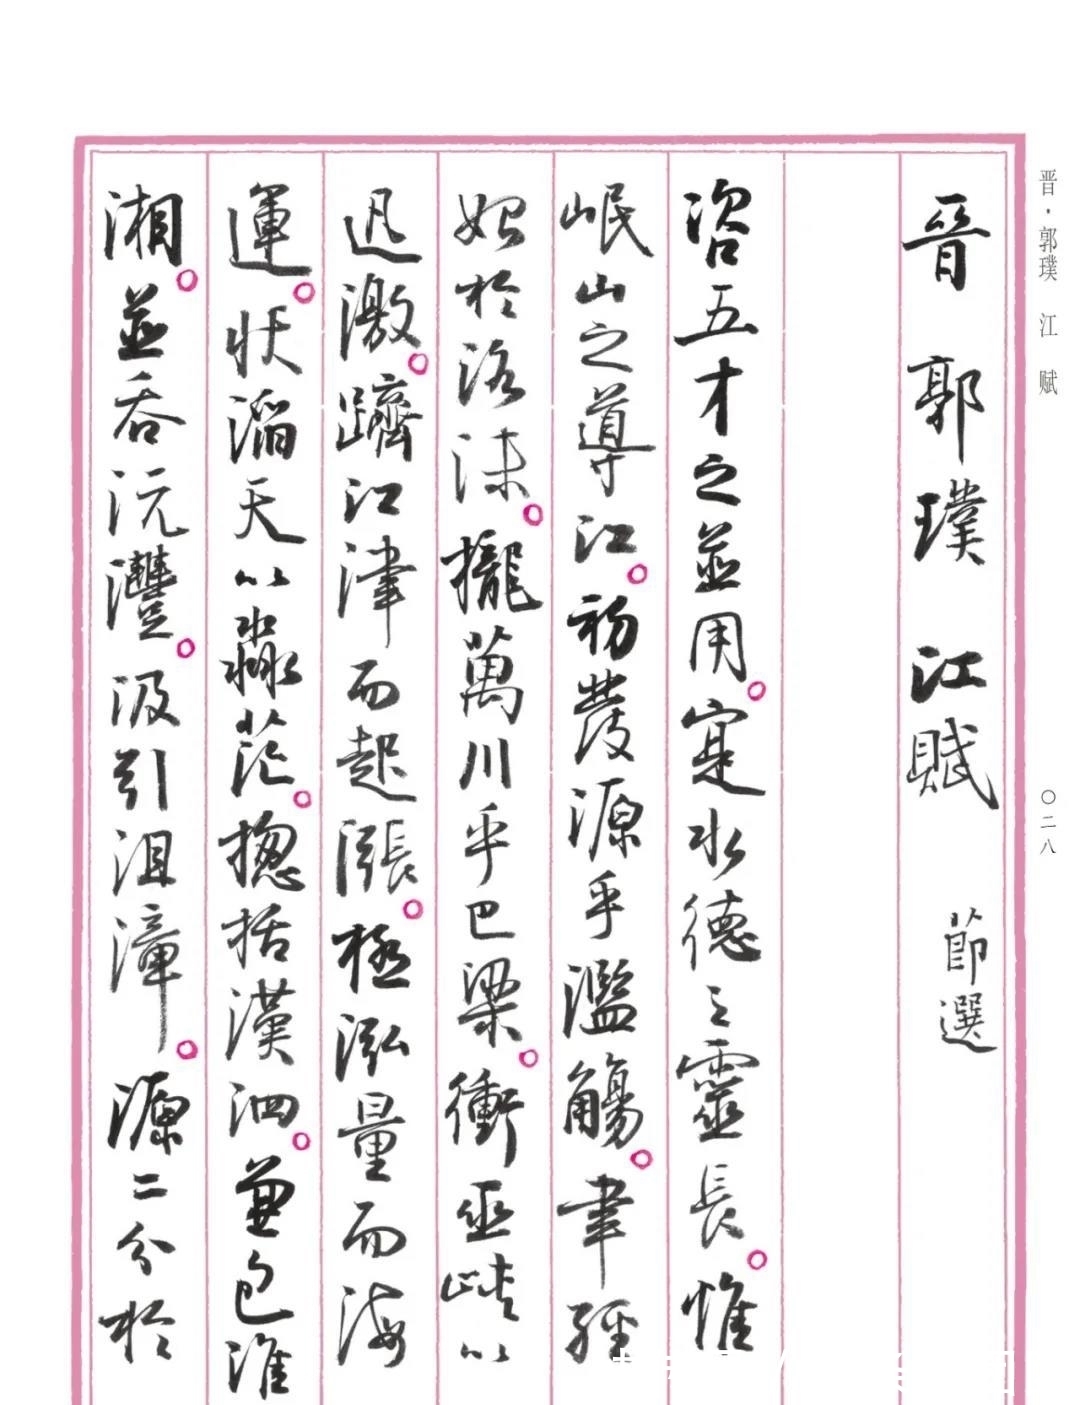 晋·郭璞 江 赋
〇二八
晉 郭 璞 江賦 節選
咨五才之並用。寔水德之靈長。惟
岷山之導江。初發源乎濫觴。聿經
始於洛沬。攏萬川乎巴梁。衝巫峽以
迅激。躋江津而起漲。極泓量而海
運。狀滔天以淼茫。揔括漢泗。兼包淮
湘。並吞沅灃。汲引沮漳。源二分於